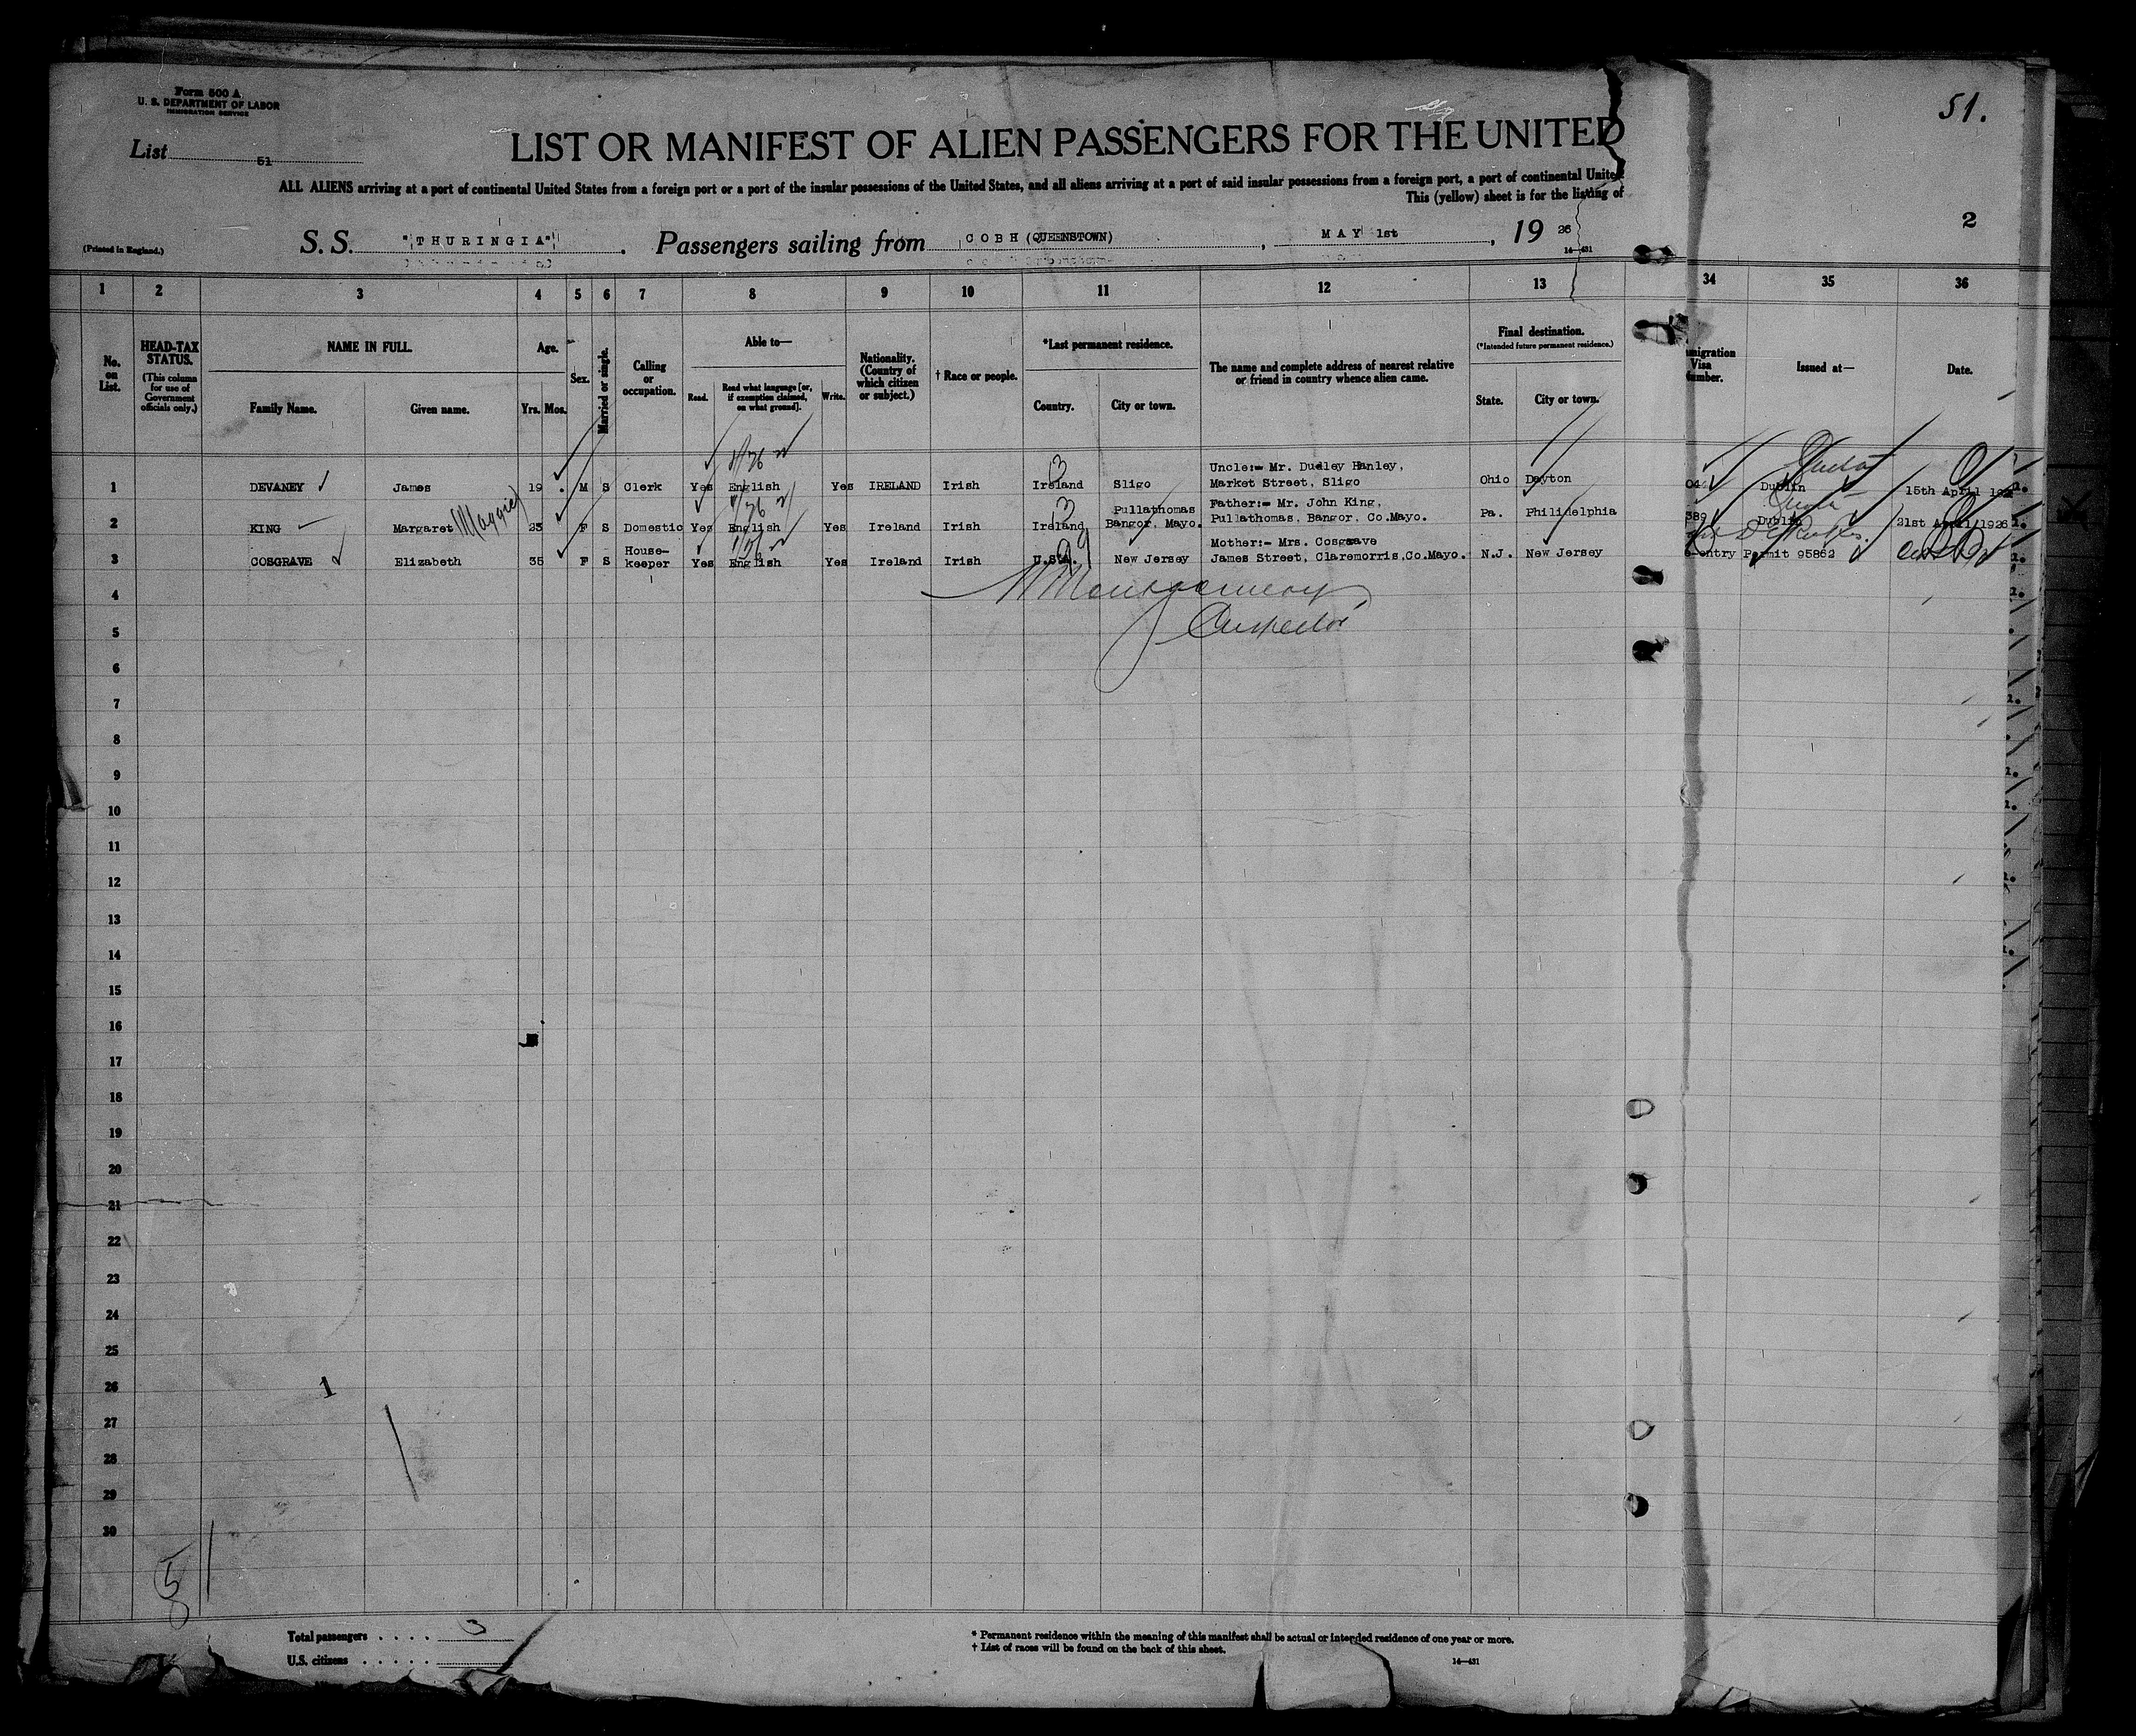 Form 500 A
U. S. DEPARTMENT OF LABOR
IMMIGRATION SERVICE
51.
List 51
LIST OR MANIFEST OF ALIEN PASSENGERS FOR THE UNITED
ALL ALIENS arriving at a port of continental United States from a foreign port or a port of the insular possessions of the United States, and all aliens arriving at a port of said insular possessions from a foreign port, a port of continental United
This (yellow) sheet is for the listing of
2
(Printed in England.)
S. S. "THURINGIA" . Passengers sailing from COBH (QUEENSTOWN) , MAY 1st , 19 26
14—431
1 2 3 4 5 6 7 8 9 10 11 12 13 34 35 36
No. on List.
HEAD-TAX STATUS.
(This column for use of Government officials only.)
NAME IN FULL.
Family Name. Given name.
Age.
Yrs. Mos.
Sex.
Married or single.
Calling or occupation.
Able to—
Read. Read what language [or, if exemption claimed, on what ground]. Write.
Nationality. (Country of which citizen or subject.)
† Race or people.
*Last permanent residence.
Country. City or town.
The name and complete address of nearest relative or friend in country whence alien came.
Final destination.
(*Intended future permanent residence.)
State. City or town.
migration Visa umber.
Issued at—
Date.
1 DEVANEY James 19 M S Clerk Yes English Yes IRELAND Irish Ireland Sligo Uncle:- Mr. Dudley Hanley, Market Street, Sligo Ohio Dayton 044 Dublin 15th April 192
2 KING Margaret (Maggie) 23 F S Domestic Yes English Yes Ireland Irish Ireland Pullathomas Bangor, Mayo. Father:- Mr. John King, Pullathomas, Bangor, Co.Mayo. Pa. Philidelphia 389 Dublin 21st April 1926
3 COSGRAVE Elizabeth 35 F S House-keeper Yes English Yes Ireland Irish U.S.A. New Jersey Mother:- Mrs. Cosgrave James Street, Claremorris, Co.Mayo. N.J. New Jersey e-entry Permit 95852
4
Montgomery
5
Inspector
6
7
8
9
10
11
12
13
14
15
16
17
18
19
20
21
22
23
24
25
26
1
27
28
29
30
5
Total passengers . . . . 3
U.S. citizens . . . . .
* Permanent residence within the meaning of this manifest shall be actual or intended residence of one year or more.
† List of races will be found on the back of this sheet.
14—431